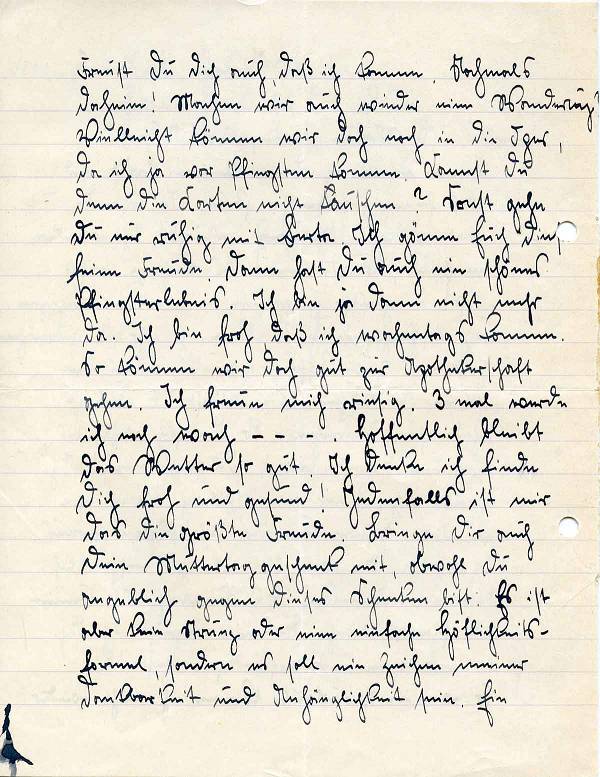 Freust Du Dich auch, daß ich komme. Nochmals
daheim! Machen wir auch wieder eine Wanderung?
Vielleicht können wir doch noch in die Oper,
da ich ja vor Pfingsten komme. Kannst Du
denn die Karten nicht tauschen? Sonst gehe
Du nur ruhig mit Berta. Ich gönne Euch die,
feine Freude. Dann hast Du auch ein schönes
Pfingsterlebnis. Ich bin ja dann nicht mehr
da. Ich bin froh, daß ich wochentags komme.
So können wir doch gut zur Apothekerschaft
gehen. Ich freue mich riesig. 3 mal werde
ich noch wach – – – . Hoffentlich bleibt
das Wetter so gut. Ich denke ich finde
Dich froh und gesund! Jedenfalls ist mir
das die größte Freude. Bringe Dir auch
Dein Muttertaggeschenk mit, obwohl Du
angeblich gegen dieses Schenken bist. Es ist
aber kein Strunz oder eine einfache Höflichkeits-
formel, sondern es soll ein Zeichen meiner
Dankbarkeit und Anhänglichkeit sein. Ein